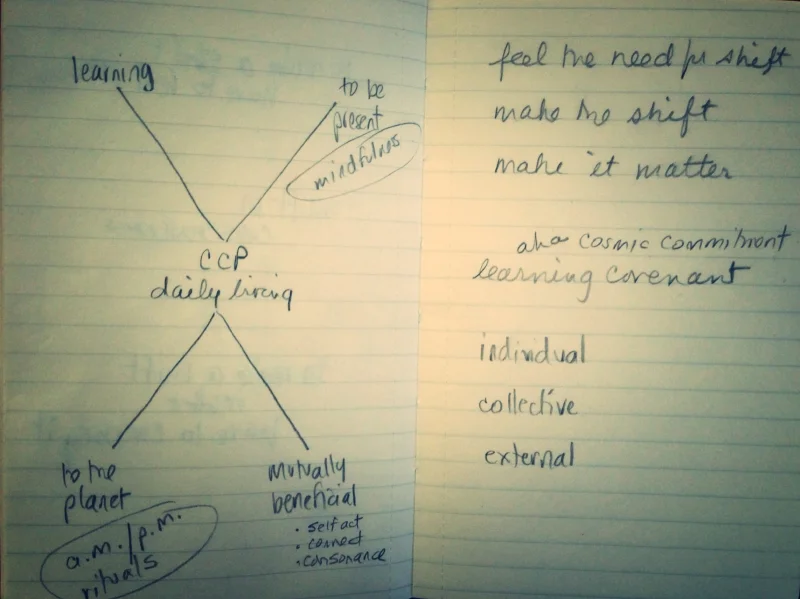 learning
to be
present
mindfulness
CCP
daily living
to the
planet
a.m./p.m.
rituals
mutually
beneficial
• self act
• connect
• consonance
feel the need for shift
make the shift
make it matter
aka cosmic commitment
learning covenant
individual
collective
external